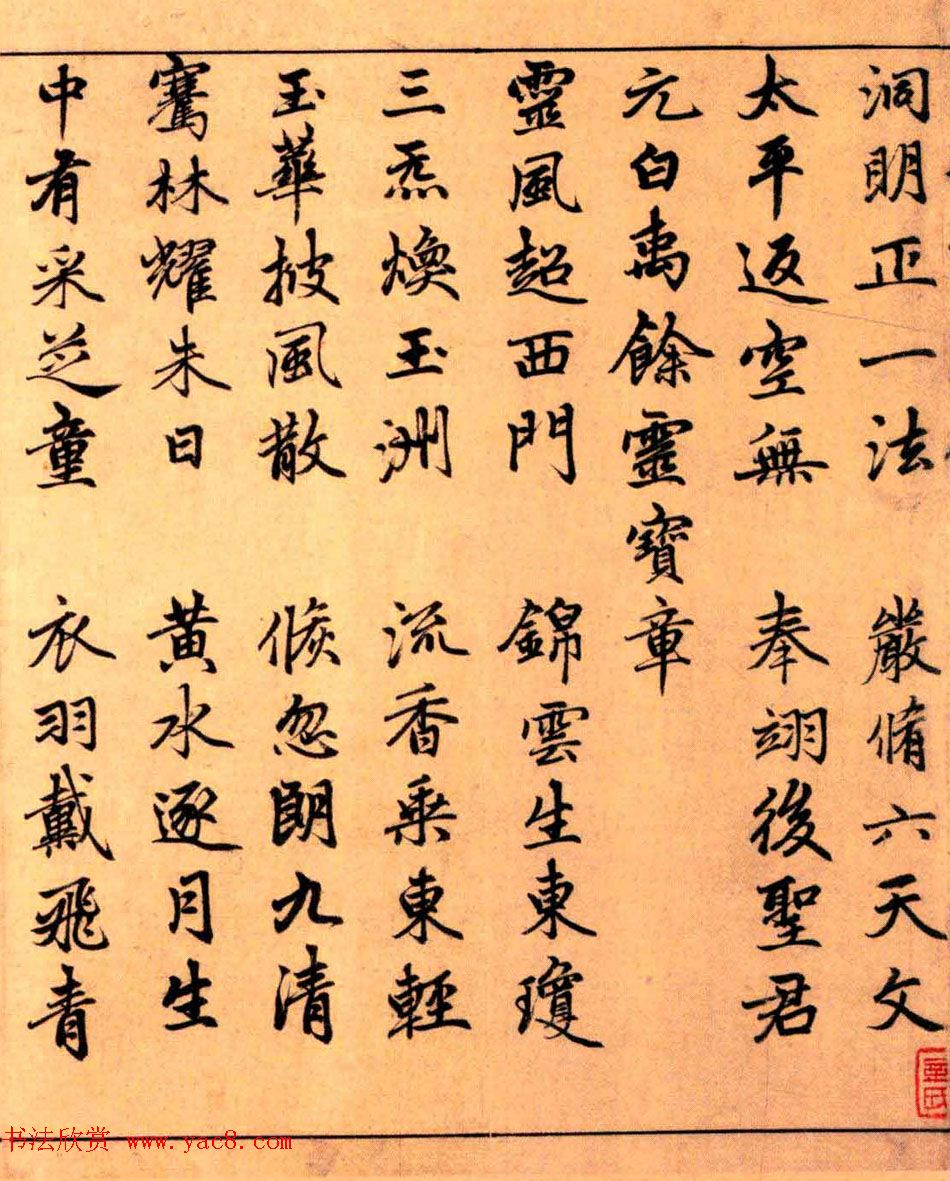 洞明正一法 嚴脩六天文
太平返空無 奉翊後聖君
元白禹餘靈寶章
靈風超西門 錦雲生東瓊
三炁煥玉洲 流香乘東輕
玉華披風散 倐忽朗九清
騫林耀朱日 黄水逐月生
中有采芝童 衣羽戴飛青
书法欣赏 www.yac8.com